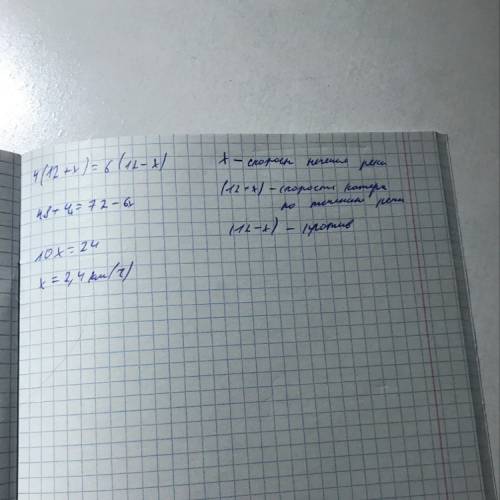 4(12+x)=6(12-x)
48+4x=72-6x
10x=24
x=2,4 км/ч)
x - скорость течения реки
(12+x) - скорость катера
по течению реки
(12-x) - против